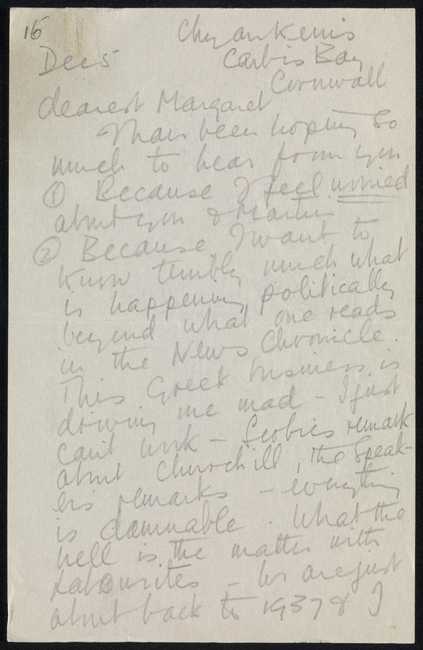 16
Chy an Kerris
Dec 5 Carbis Bay
Cornwall
dearest Margaret
I have been hoping so
much to hear from you
① Because I feel worried
about you & Martin
② Because I want to
know terribly much what
is happening politically
beyond what one reads
in the News Chronicle.
This Greek business is
driving me mad – I just
can't work – Scobies remark
about Churchill, the Speak-
ers remarks – everything
is damnable. What the
hell is the matter with
Labourites – we are just
about back to 1937 & I